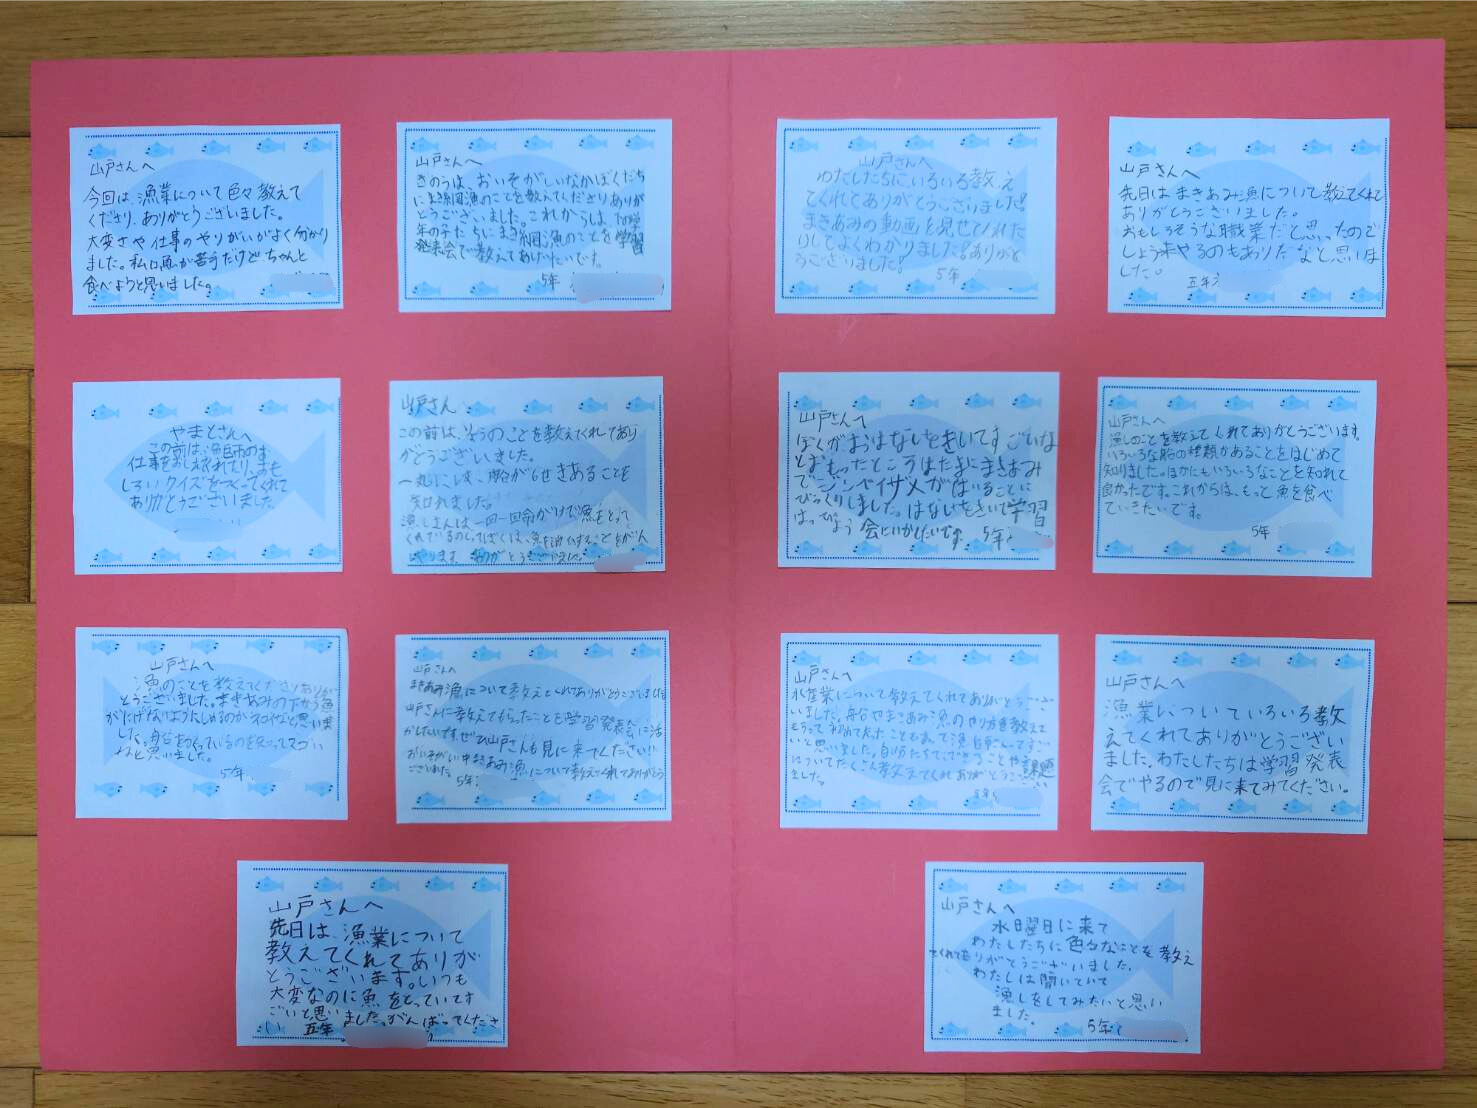 山戸さんへ
今回は、漁業について色々教えて
くださり、ありがとうございました。
大変さや仕事のやりがいがよく分かり
ました。私は魚が苦手だけどちゃんと
食べようと思いました。
山戸さんへ
きのうは、おいそがしいなかぼくだち
にまき網漁のことを教えてくださりありが
とうございました。これからは、下の学
年の子たちにまき網漁のことを学習
発表会で教えてあげたいです。
5年
山戸さんへ
わたしたちに、いろいろ教え
てくれてありがとうございました!
まきあみの動画を見せてくれた
りしてよくわかりました!ありがと
うございました!
5年
山戸さんへ
先日はまきあみ漁について教えてくれて
ありがとうございました。
おもしろそうな職業だと思ったので
しょう来やるのもありだなと思いま
した。
五年
やまとさんへ
この前は、漁師のお
仕事をおしえてくれたり、おも
しろいクイズをつくってくれて
ありがとうございました。
山戸さん
この前は、りょうのことを教えてくれてあり
がとうございました。
一丸にしき、船が
あることを
知れました。
漁しさんは一回一回命がけで魚をとって
くれているので、ぼくは、魚を
することをがん
ばります。ありがとうございました。
山戸さんへ
ぼくがまうはないをきいてすごいな
とおもったところはたまにまきあみ
でジンベイザメがはいることに
びっくりしました。はなしをきいて学習
はっぴょう会にいかしたいです。5年
山戸さんへ
漁しのことを教えてくれてありがとうございます。
いろいろな船の種類があることをはじめて
知りました。ほかにもいろいろなことを知れて
良かったです。これからは、もっと魚を食べ
ていきたいです。
5年
山戸さんへ
漁のことを教えてくださりありが
とうございました。まきあみの下から魚
がにげないようにしれるのがスゴイなと思いま
した。船を
っているのを知ってスゴい
なと思いました。
5年
山戸さんへ
まきあみ漁について教えてくれてありがとうございました
山戸さんに教えてもらったことを学習発表会に活
かしたいです。ぜひ山戸さんも見に来てください!!
おいそがしい中まきあみ漁について教えてくれてありがとう
ございました 5年
山戸さんへ
水産業について教えてくれてありがとうござ
いました。船やまきあみ漁のやり方を教えて
もらって初めて知ったこともあって漁師さんってすご
いと思いました。自分たちでできることや課題
についてたくさん教えてくれありがとうござい
ました。
5年
山戸さんへ
漁業についていろいろ教
えてくれてありがとうござい
ました。わたしたちは学習発表
会でやるので見に来てみてください。
山戸さんへ
先日は、漁業について
教えてくれてありが
とうございます。いつも
大変なのに魚をとっていてす
ごいと思いました。がんばってくださ
い 五年
山戸さんへ
水曜日に来て
わたしたちに色々なことを教え
てくれてありがとうございました。
わたしは聞いていて
漁しをしてみたいと思い
ました。
5年